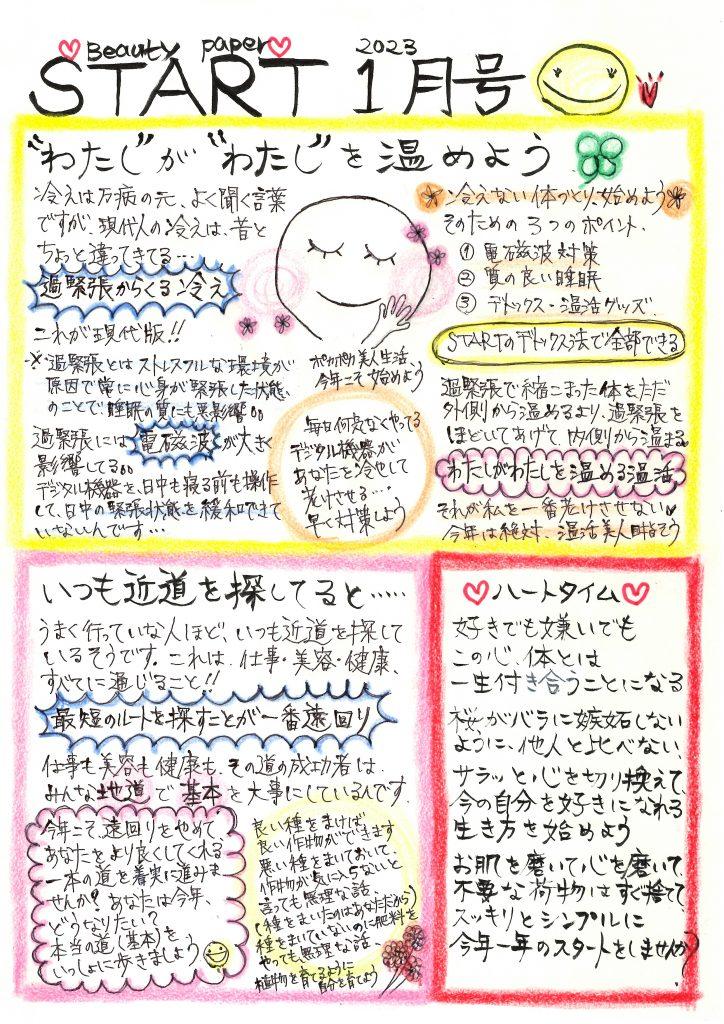 Beauty paper
START 2023 1月号
"わたし"が"わたし"を温めよう
冷えは万病の元、よく聞く言葉
ですが、現代人の冷えは、昔と
ちょっと違ってきてる…
過緊張からくる冷え
これが現代版!!
※過緊張とはストレスフルな環境が
原因で常に心身が緊張した状態
のことで、睡眠の質にも悪影響。。
過緊張には電磁波が大きく
影響してる。。
デジタル機器を、日中も寝る前も操作
して、日中の緊張状態を緩和できて
いないんです…
ポカポカ美人生活、
今年こそ始めよう
毎日何気なくやってる
デジタル機器が
あなたを冷やして
老けさせる…
早く対策しよう
冷えない体づくり、始めよう
そのための3つのポイント、
① 電磁波対策
② 質の良い睡眠
③ デトックス・温活グッズ
STARTのデトックス法で全部できる
過緊張で縮こまった体をただ
外側から温めるより、過緊張を
ほどいてあげて、内側から温まる
わたしがわたしを温める温活
それが私を一番老けさせない
今年は絶対、温活美人目指そう
いつも近道を探してると……
うまく行っていな人ほど、いつも近道を探して
いるそうです。これは、仕事・美容・健康、
すべてに通じること!!
最短のルートを探すことが一番遠回り
仕事も美容も健康も、その道の成功者は
みんな地道で基本を大事にしているんです
今年こそ、遠回りをやめて
あなたをより良くしてくれる
一本の道を着実に進みま
せんか?あなたは今年、
どうなりたい?
本当の道(基本)を
いっしょに歩きましょう
良い種をまけば
良い作物ができます
悪い種をまいておいて、
作物が気に入らないと
言っても無理な話
(種をまいたのはあなただから)
種をまいていないのに肥料を
やっても無理な話
植物を育てるように
自分を育てよう
ハートタイム
好きでも嫌いでも
この心、体とは
一生付き合うことになる
桜がバラに嫉妬しない
ように、他人と比べない、
サラッと心を切り換えて、
今の自分を好きになれる
生き方を始めよう
お肌を磨いて、心を磨いて、
不要な荷物はすぐ捨て
スッキリとシンプルに
今年一年のスタートをしませんか?